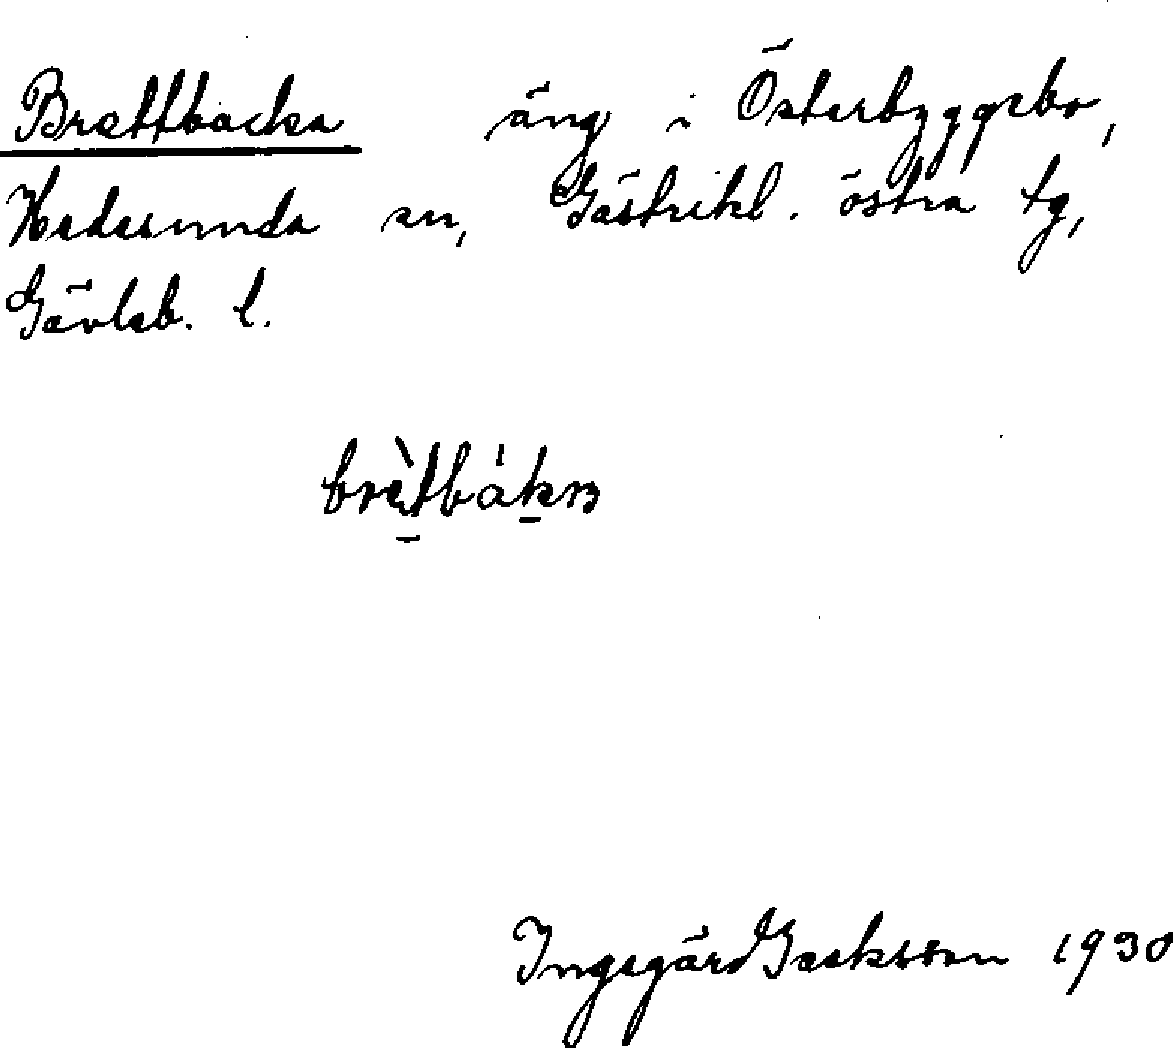 Brettbacka äng i Österbyggebo,
Hedesunda sn, Gästrikl. östra tg,
Gävleb. l.
Ingegärd Isaksson 1930